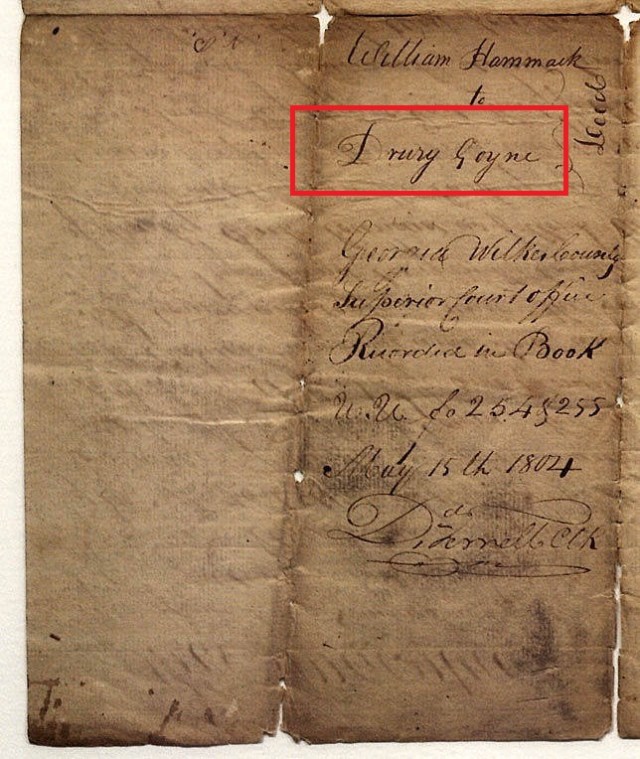 William Hammack
to
Drury Goyne
Deed
Georgia Wilkes County
Superior Court office
Recorded in Book
U.U. fo 254 & 255
May 15th 1804
D Terrell Clk